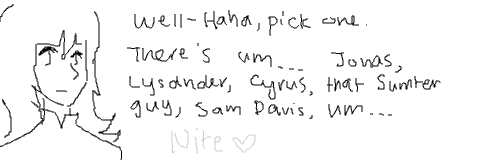 Well-Haha, pick one.
There's um... Jonas,
Lysander, Cyrus, that Sumter
guy, Sam Davis, um...
Nite ♡